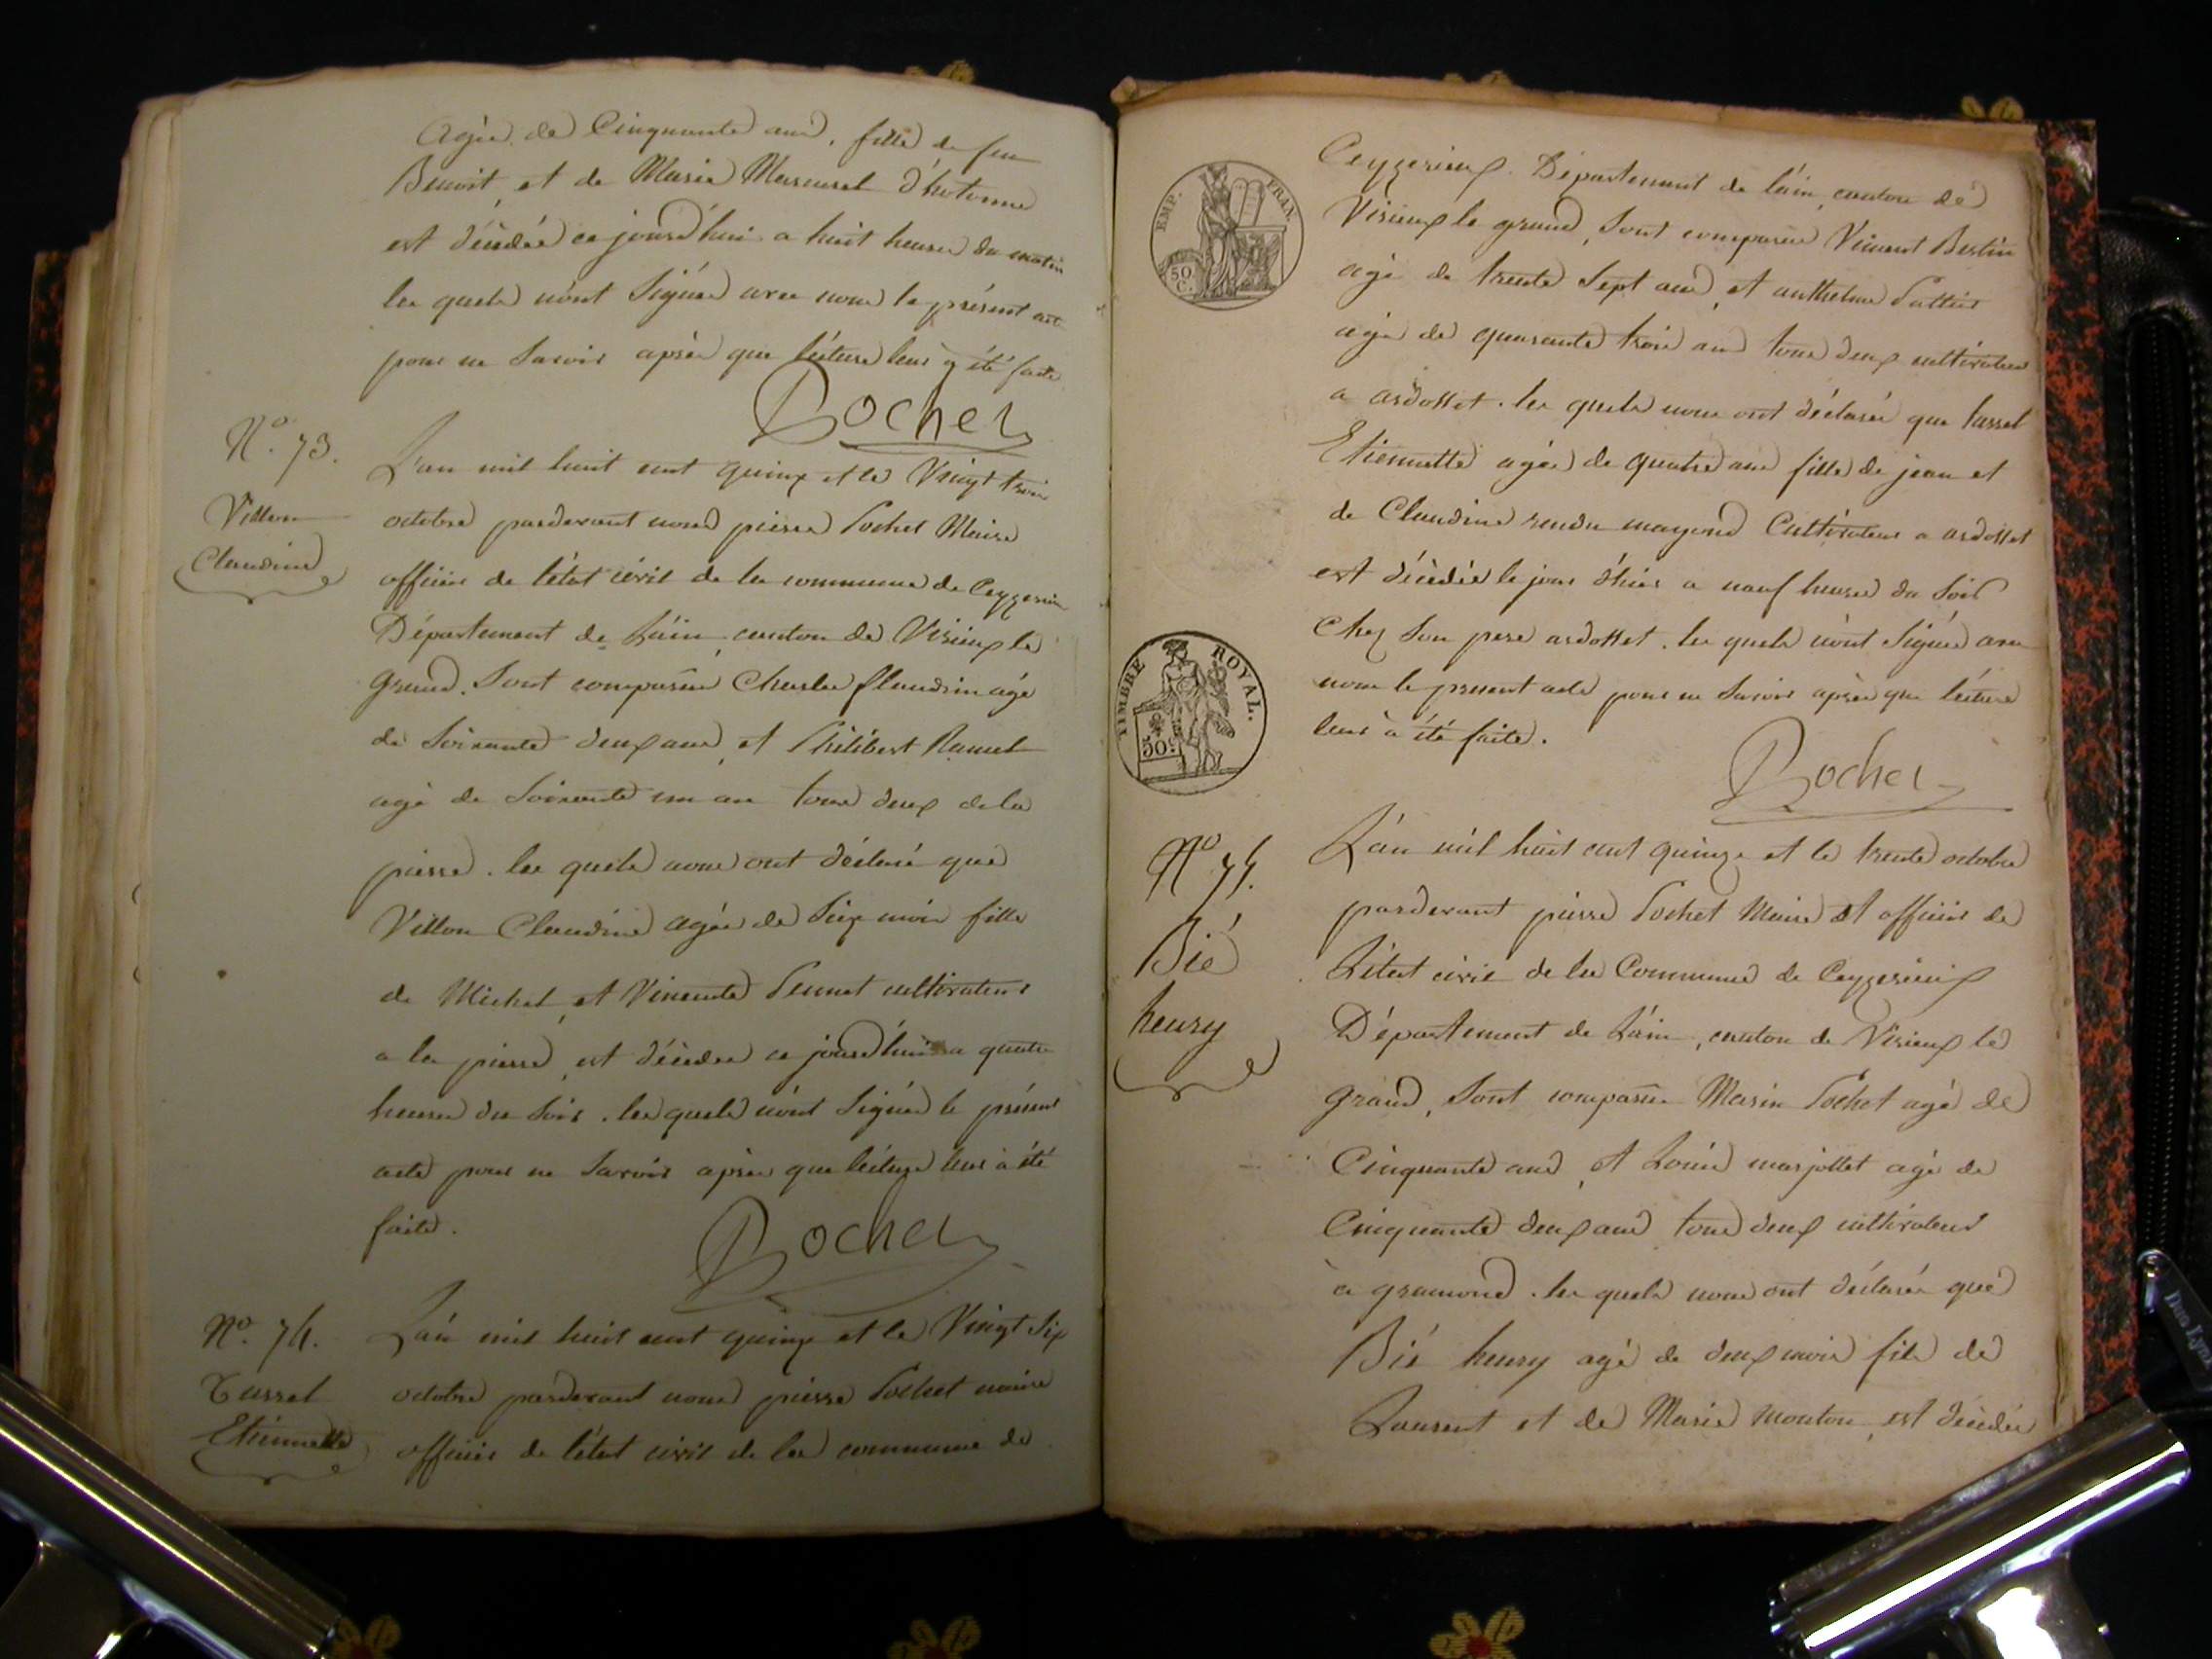 agée de Cinquante ans, fille de feu
Benoit et de Marie d'hotonne
est décédée ce jourd'hui a huit heures du matin
les quels n'ont signés avec nous le présent act
pour ne savoir après que lecture leur a été faite
Pochet
N.o 73.
Villon
Claudine
L'an mil huit cent quinze et le Vingt trois
octobre pardevant nous pierre Pochet Maire
officier de l'état civil de la commune de Ceyzerieu
Département de L'ain, canton de Virieux le
grand. Sont comparus Charles flandrin agé
de soixante deux ans, et Philibert Ramel
agé de soixante un an tous deux de la
pierre. les quels nous ont déclaré que
Villon Claudine agée de six mois fille
de Michel, et Vincente Pennet cultivateur
a la pierre, est décédée ce jourd'hui a quatre
heures du soir. les quels n'ont signés le présent
acte pour ne savoir après que lecture leur à été
faite.
Pochet
N.o 74.
Tussel
Etiennette
L'an mil huit cent quinze et le Vingt six
octobre pardevant nous pierre Pochet maire
officier de l'état civil de la commune de
EMP. FRAN.
50 C.
TIMBRE ROYAL.
50 c
Ceyzerieux Département de l'ain, canton de
Virieux le grand, Sont comparus Vincent Bertin
agé de trente sept ans, et anthelme
agé de quarante trois ans tous deux cultivateurs
a ardosset. les quels nous ont déclarés que tussel
Etiennette agée de quatre ans fille de jean et
de Claudine Cultivateur a ardosset
est décédée le jour d'hier a neuf heures du soir
Chez son pere ardosset. les quels n'ont signés avec
nous le present acte pour ne savoir après que lecture
leur à été faite.
Pochet
N.o 75.
Bié
henry
L'an mil huit cent quinze et le trente octobre
pardevant pierre Pochet Maire et officier de
L'état civil de la Commune de Ceyzerieux
Département de L'ain, canton de Virieux le
grand, Sont comparus Marin Pochet agé de
Cinquante ans, et Louis marjollet agé de
Cinquante deux ans tous deux cultivateurs
à gramond. les quels nous ont déclarés que
Bié henry agé de deux mois fils de
Laurent et de Marie mouton, est décédée